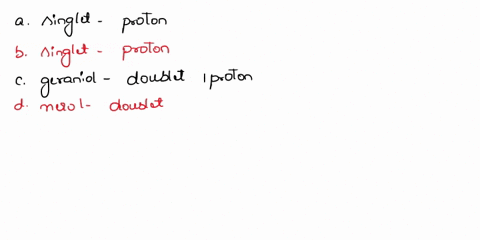 a. singlet - proton
b. singlet - proton
c. geraniol - doublet 1 proton
d. nerol - doublet